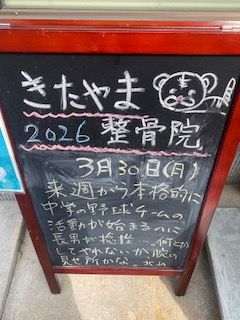 きたやま
2026 整骨院
3月30日(月)
来週から本格的に
中学の野球チームの
活動が始まるのに
長男が捻挫…。何とか
してやれないか腕の
見せ所かな。北山